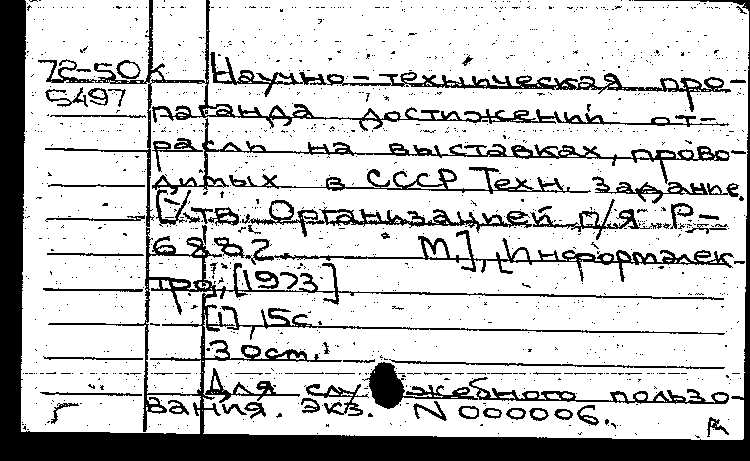 72-50к Научно-техническая про-
5497 паганда достижений от-
расли на выставках, прово-
димых в СССР. Техн. задание.
[Утв. Организацией п/я Р-
6882. М.], [Информэлек-
тро], [1973].
[1], 15с.
3 Оcт.
Для служебного пользо-
вания. экз. N 000006.